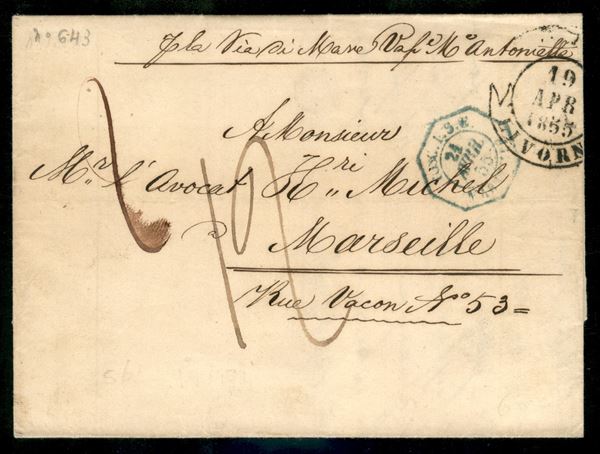 No 643
Pla Via di Mare Vap.e Ma Antoniette
19
APR
1855
LIVORNO
A Monsieur
21
AVRIL
55
Mr l'Avocat Hri Michel
a Marseille
Rue Vacon No 53=